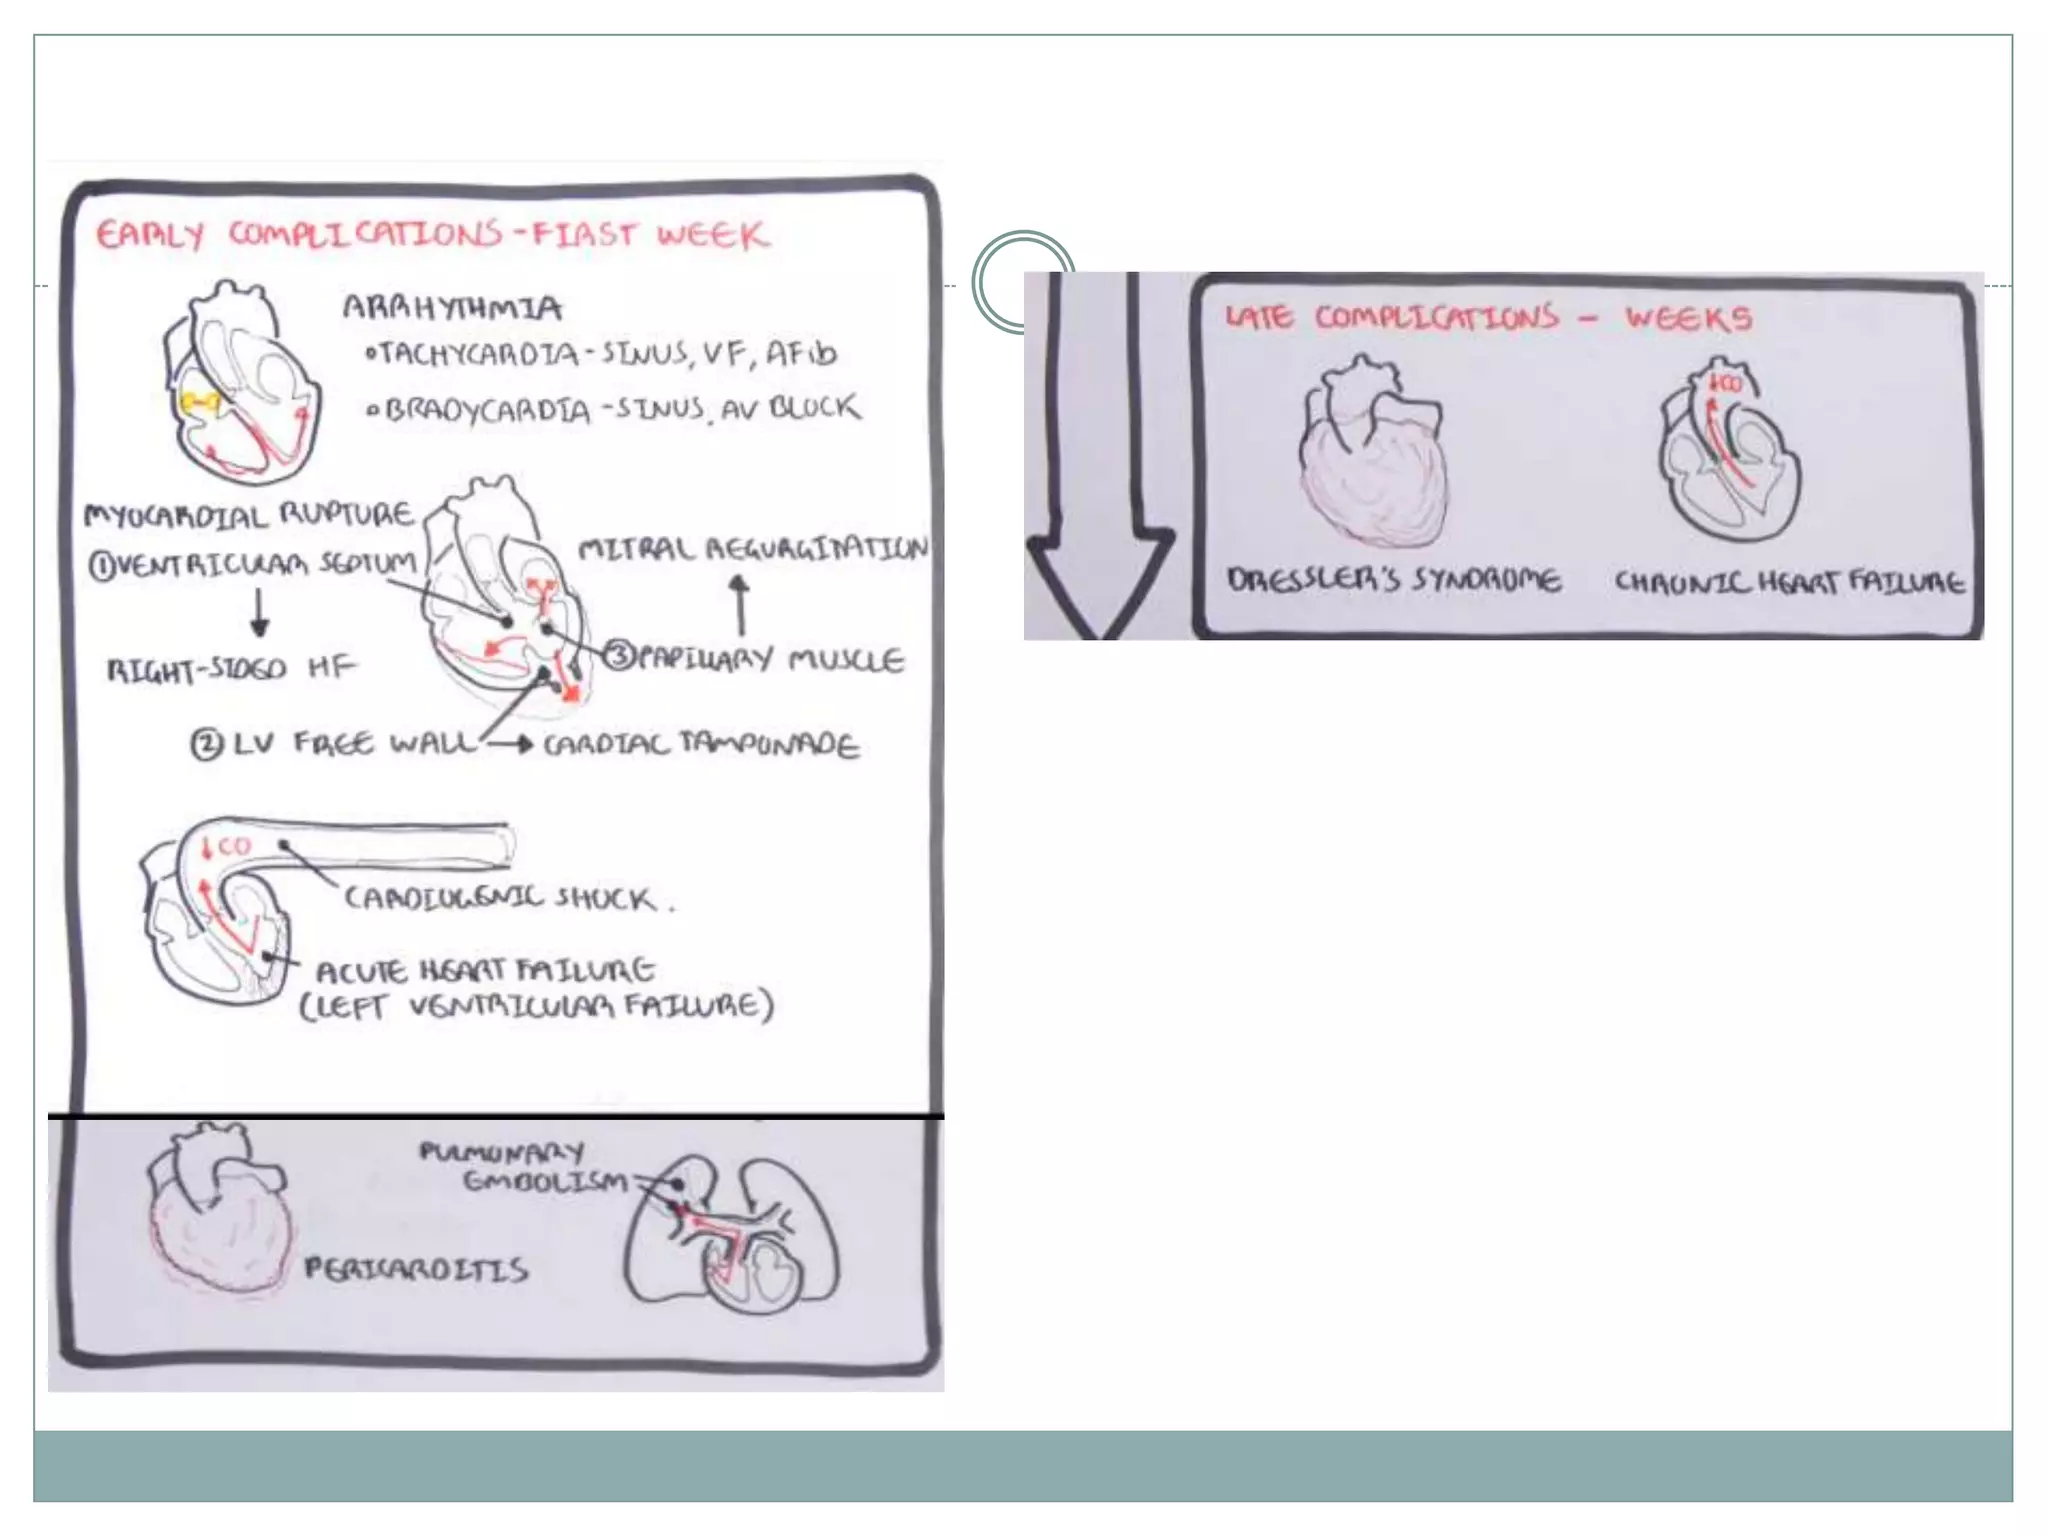 EARLY COMPLICATIONS - FIRST WEEK
ARRHYTHMIA
• TACHYCARDIA - SINUS, VF, AFib
• BRADYCARDIA - SINUS, AV BLOCK
MYOCARDIAL RUPTURE
① VENTRICULAR SEPTUM
MITRAL REGURGITATION
RIGHT-SIDED HF
③ PAPILLARY MUSCLE
② LV FREE WALL → CARDIAC TAMPONADE
↓CO
CARDIOGENIC SHOCK.
ACUTE HEART FAILURE
(LEFT VENTRICULAR FAILURE)
PULMONARY
EMBOLISM
PERICARDITIS
LATE COMPLICATIONS - WEEKS
↓CO
DRESSLER'S SYNDROME
CHRONIC HEART FAILURE